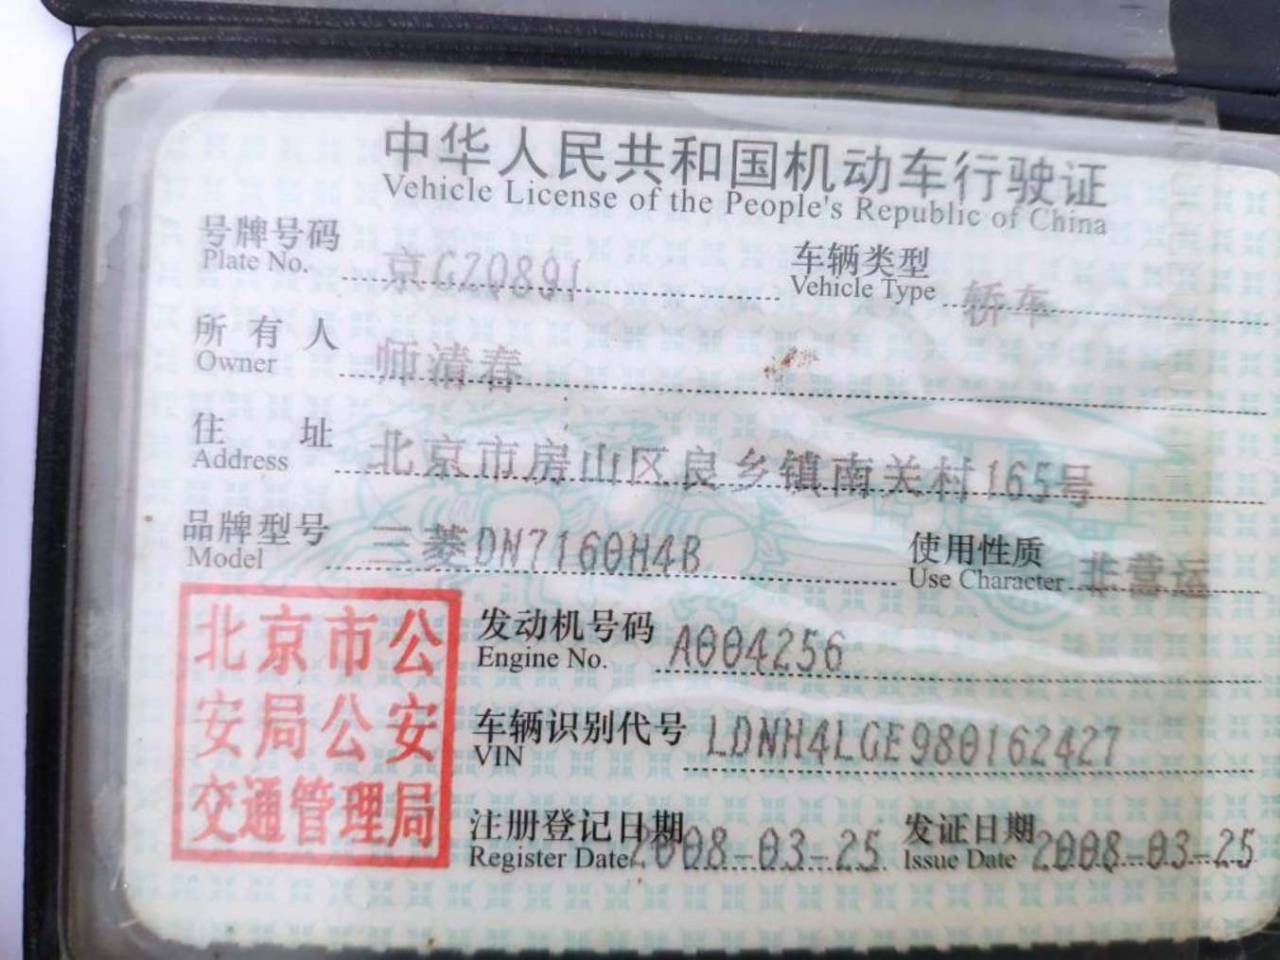 中华人民共和国机动车行驶证
Vehicle License of the People's Republic of China
号牌号码 京GZ0891 车辆类型 轿车
Plate No. Vehicle Type
所有人 师清春
Owner
住址 北京市房山区良乡镇南关村165号
Address
品牌型号 三菱DN7160H4B 使用性质 非营运
Model Use Character
北京市公
安局公安
交通管理局
发动机号码 A004256
Engine No.
车辆识别代号 LDNH4LGE980162427
VIN
注册登记日期 2008-03-25 发证日期 2008-03-25
Register Date Issue Date